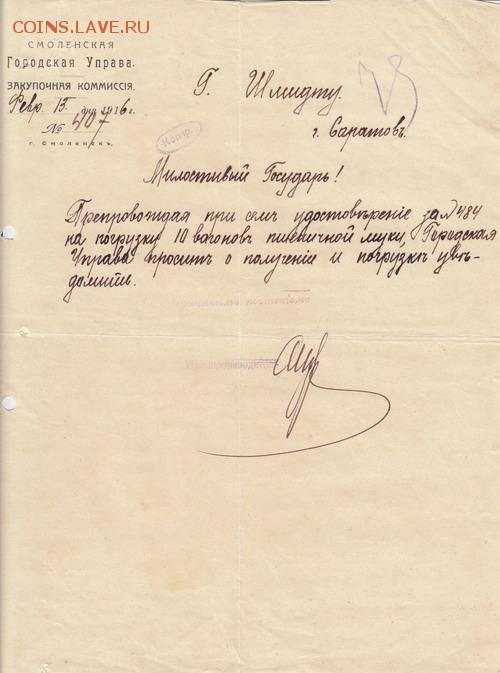 COINS.LAVE.RU
СМОЛЕНСКАЯ
Городская Управа.
ЗАКУПОЧНАЯ КОММИССІЯ.
Февр. 15 дня 1916 г.
№ 407
г. Смоленскъ.
Копир.
Г. Шмидту.
г. Саратовъ.
Милостивый Государь!
Препровождая при семъ удостовѣреніе за № 484
на погрузку 10 вагоновъ пшеничной муки, Городская
Управа проситъ о полученіи и погрузкѣ увѣ-
домить.